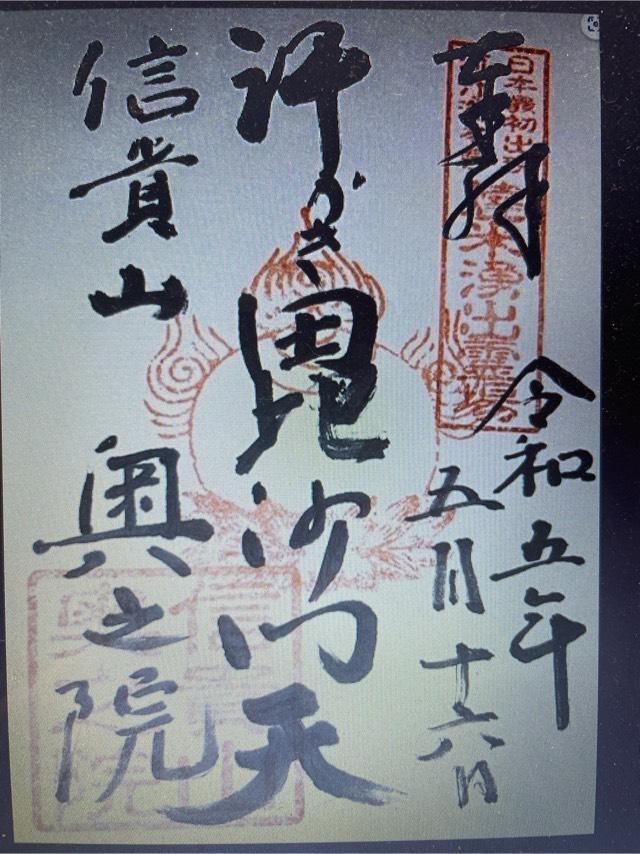 奉拝
日本最初出
米湧出霊場
令和五年
五月十六日
汗かき毘沙門天
信貴山 奥之院